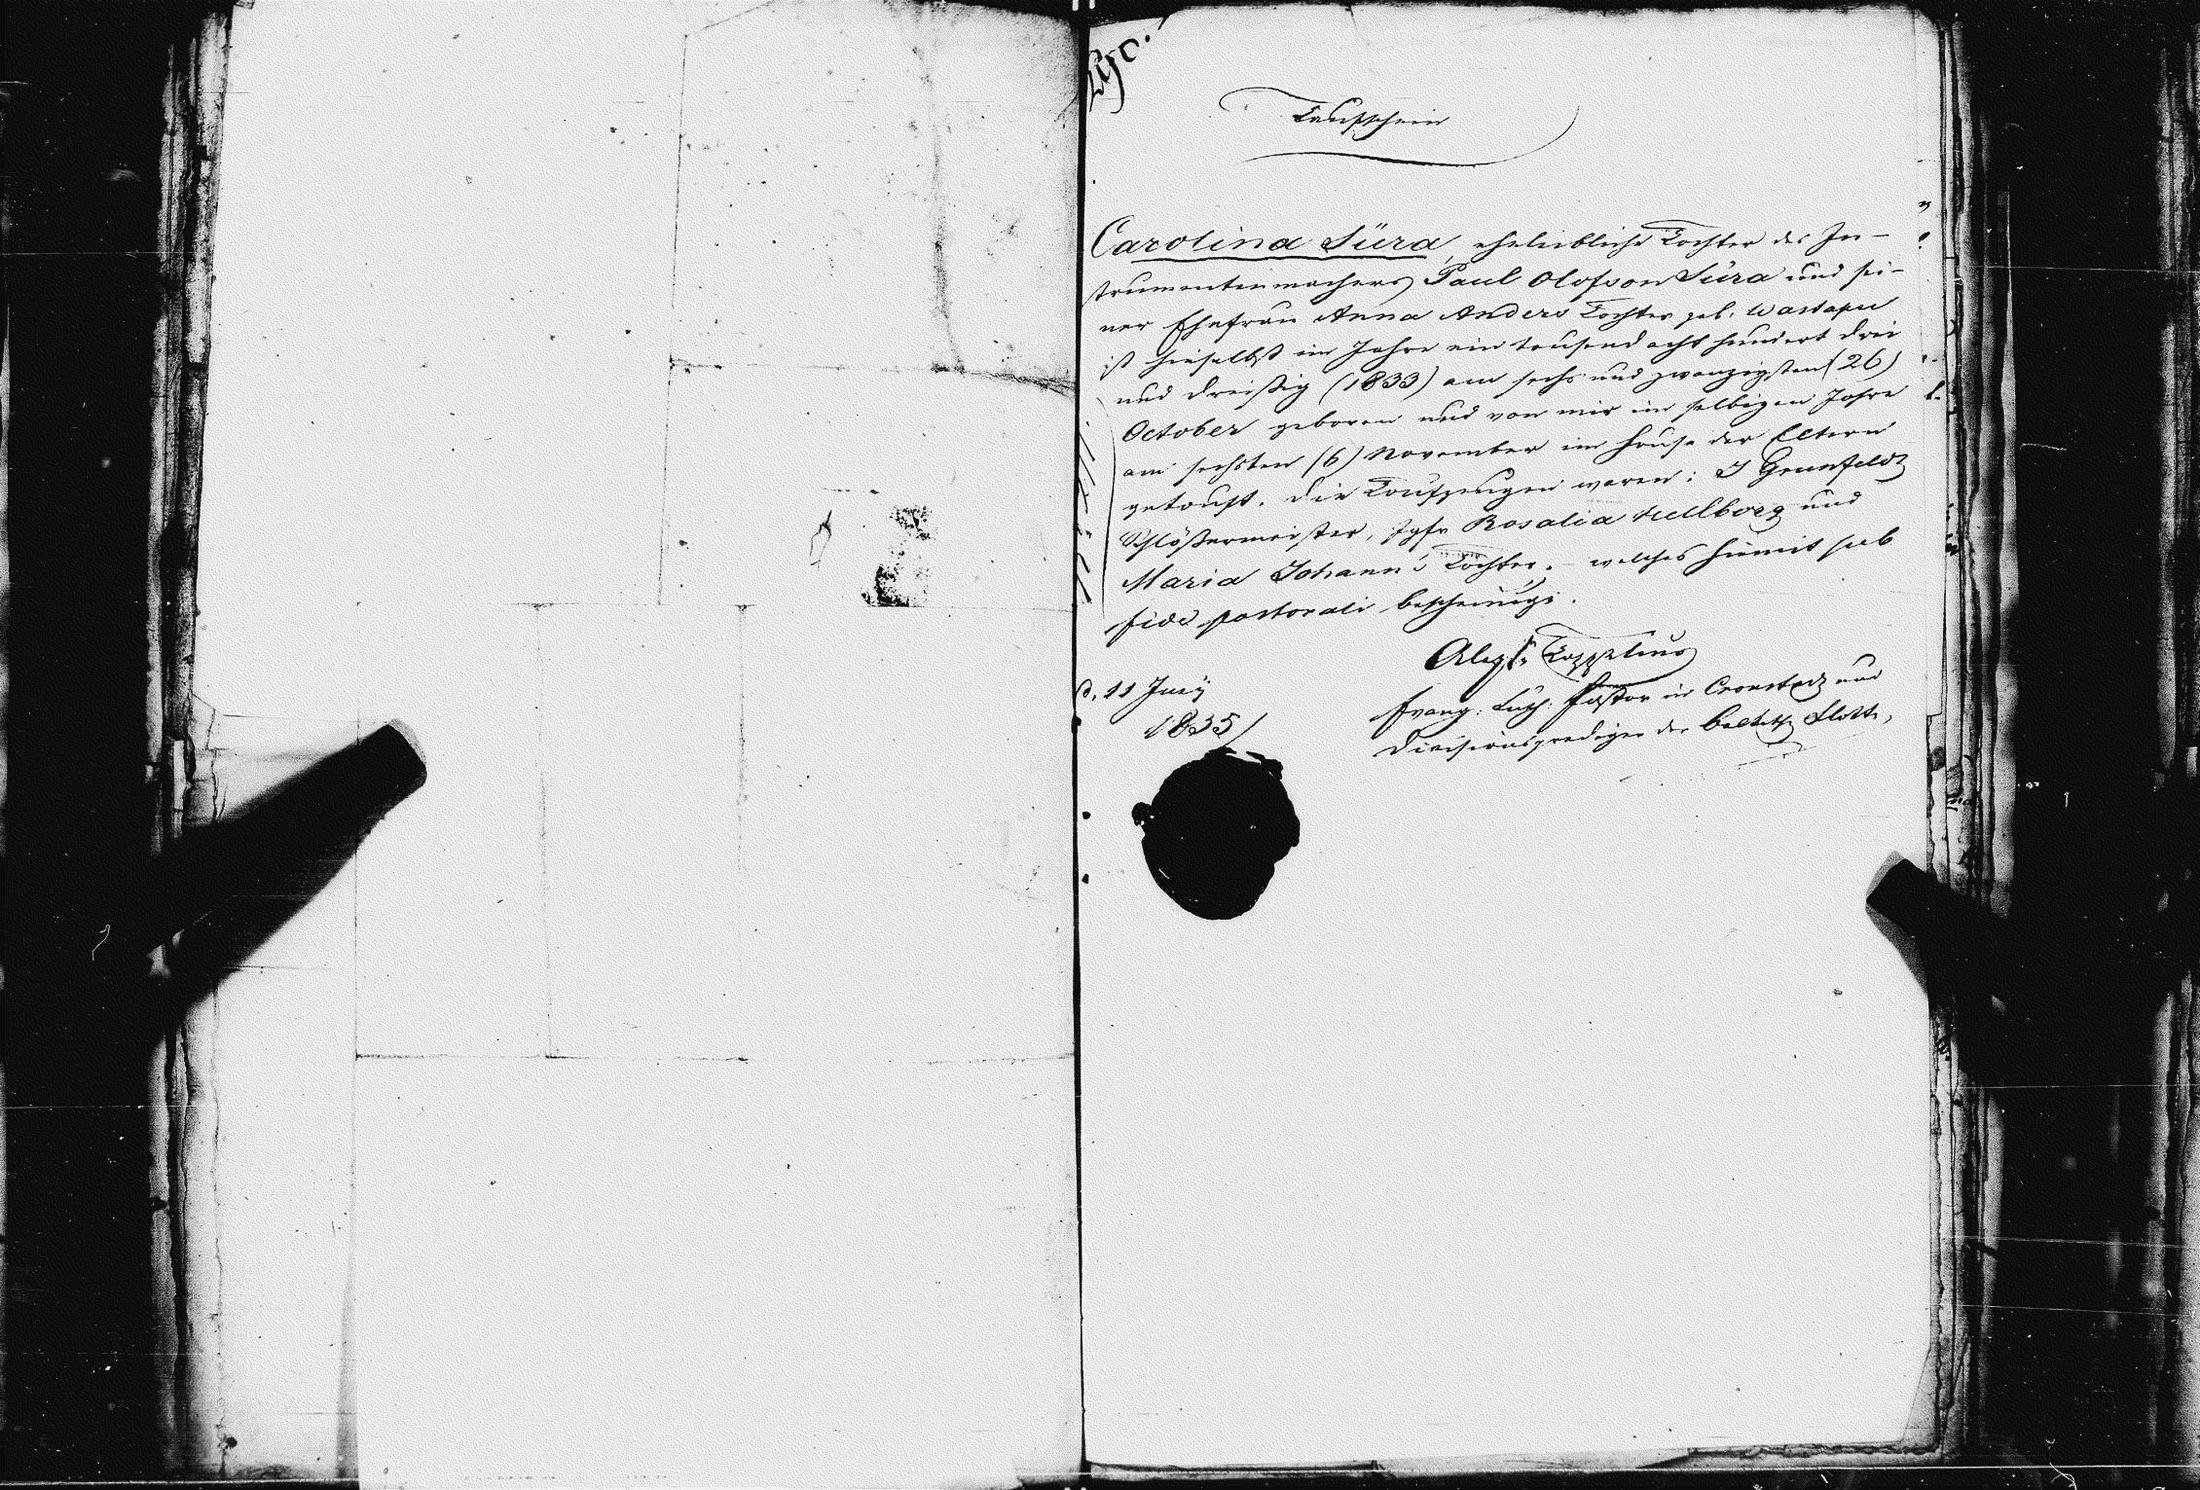 290.
Taufschein
Carolina Süra, eheleibliche Tochter des In-
strumentenmachers Paul Olofson Süra und sei-
ner Ehefrau Anna Anders Tochter geb. Wastapu
ist hieselbst im Jahre ein tausend acht hundert drei
und dreißig (1833) am sechs und zwanzigsten (26)
October geboren und von mir im selbigen Jahre
am sechsten (6) November im Hause der Eltern
getauft. Die Taufzeugen waren: I Grunfeldt
Schlößermeister, Jgfr Rosalia Hellborg und
Maria Johann's Tochter. - welches hiemit sub
fide pastorali bescheinigt.
Tappelius
d. 11 Juny
Evang: Luth: Pastor in Cronstadt und
1835
Divisionsprediger der Flotte,